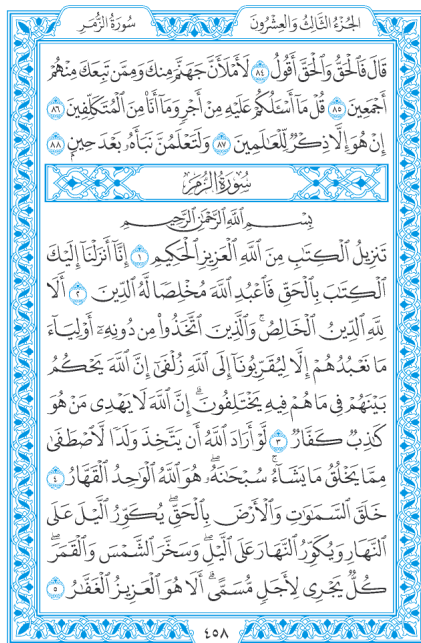 الجزء الثالث والعشرون سورة الزمر
قَالَ فَالْحَقُّ وَالْحَقَّ أَقُولُ ٨٤ لَأَمْلَأَنَّ جَهَنَّمَ مِنكَ وَمِمَّن تَبِعَكَ مِنْهُمْ
أَجْمَعِينَ ٨٥ قُلْ مَا أَسْـَٔلُكُمْ عَلَيْهِ مِنْ أَجْرٍ وَمَا أَنَا۠ مِنَ الْمُتَكَلِّفِينَ ٨٦
إِنْ هُوَ إِلَّا ذِكْرٌ لِّلْعَالَمِينَ ٨٧ وَلَتَعْلَمُنَّ نَبَأَهُۥ بَعْدَ حِينٍ ٨٨
سُورَةُ الزُّمَرِ
بِسْمِ اللَّهِ الرَّحْمَٰنِ الرَّحِيمِ
تَنزِيلُ الْكِتَٰبِ مِنَ اللَّهِ الْعَزِيزِ الْحَكِيمِ ١ إِنَّا أَنزَلْنَا إِلَيْكَ
الْكِتَٰبَ بِالْحَقِّ فَاعْبُدِ اللَّهَ مُخْلِصًا لَّهُ الدِّينَ ٢ أَلَا
لِلَّهِ الدِّينُ الْخَالِصُ ۚ وَالَّذِينَ اتَّخَذُوا مِن دُونِهِۦ أَوْلِيَاءَ
مَا نَعْبُدُهُمْ إِلَّا لِيُقَرِّبُونَا إِلَى اللَّهِ زُلْفَىٰ إِنَّ اللَّهَ يَحْكُمُ
بَيْنَهُمْ فِى مَا هُمْ فِيهِ يَخْتَلِفُونَ ۗ إِنَّ اللَّهَ لَا يَهْدِى مَنْ هُوَ
كَٰذِبٌ كَفَّارٌ ٣ لَّوْ أَرَادَ اللَّهُ أَن يَتَّخِذَ وَلَدًا لَّاصْطَفَىٰ
مِمَّا يَخْلُقُ مَا يَشَاءُ ۚ سُبْحَٰنَهُۥ ۖ هُوَ اللَّهُ الْوَٰحِدُ الْقَهَّارُ ٤
خَلَقَ السَّمَٰوَٰتِ وَالْأَرْضَ بِالْحَقِّ ۖ يُكَوِّرُ اللَّيْلَ عَلَى
النَّهَارِ وَيُكَوِّرُ النَّهَارَ عَلَى اللَّيْلِ ۖ وَسَخَّرَ الشَّمْسَ وَالْقَمَرَ ۖ
كُلٌّ يَجْرِى لِأَجَلٍ مُّسَمًّى ۗ أَلَا هُوَ الْعَزِيزُ الْغَفَّٰرُ ٥
٤٥٨